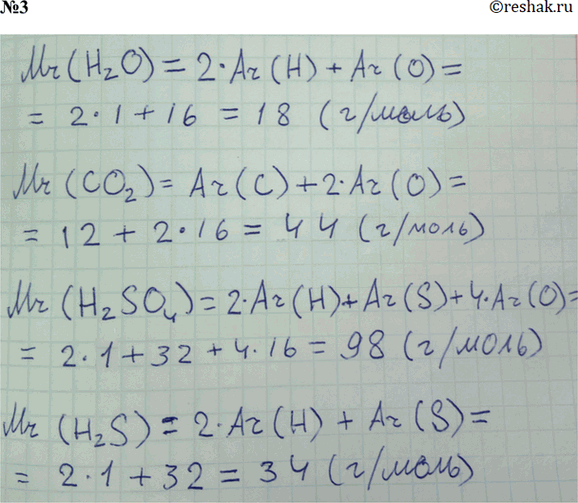 №3
©reshak.ru
Mr (H₂O) = 2·Ar (H) + Ar (O) =
= 2·1 + 16 = 18 (г/моль)
Mr (CO₂) = Ar (C) + 2·Ar (O) =
= 12 + 2·16 = 44 (г/моль)
Mr (H₂SO₄) = 2·Ar (H) + Ar (S) + 4·Ar (O) =
= 2·1 + 32 + 4·16 = 98 (г/моль)
Mr (H₂S) = 2·Ar (H) + Ar (S) =
= 2·1 + 32 = 34 (г/моль)